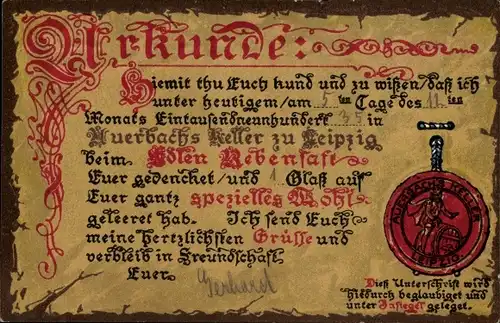 Urkunde:
Hiemit thu Euch kund und zu wißen/daß ich
unter heutigem/am 5 ten Tage des 11. ten
Monats Eintausendneunhundert 35 in
Auerbachs Keller zu Leipzig
beim Edlen Rebensaft
Euer gedencket/und 1 Glaß auf
Euer gantz spezielles Wohl
geleeret hab. Ich send Euch
meine hertzlichsten Grüsse und
verbleib in Freundschaft
Euer Gerhard
AUERBACHS KELLER
LEIPZIG
Dieß Unterschrift wird
hiedurch beglaubiget und
unter Insiegel geleget.